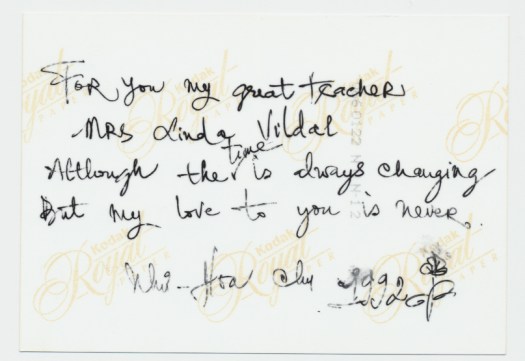 FOR you my great teacher
MRS Linda Vildal
Although the time is always changing
But my love to you is never.
Hoa Chu 1992
Kodak
Royal
PAPER